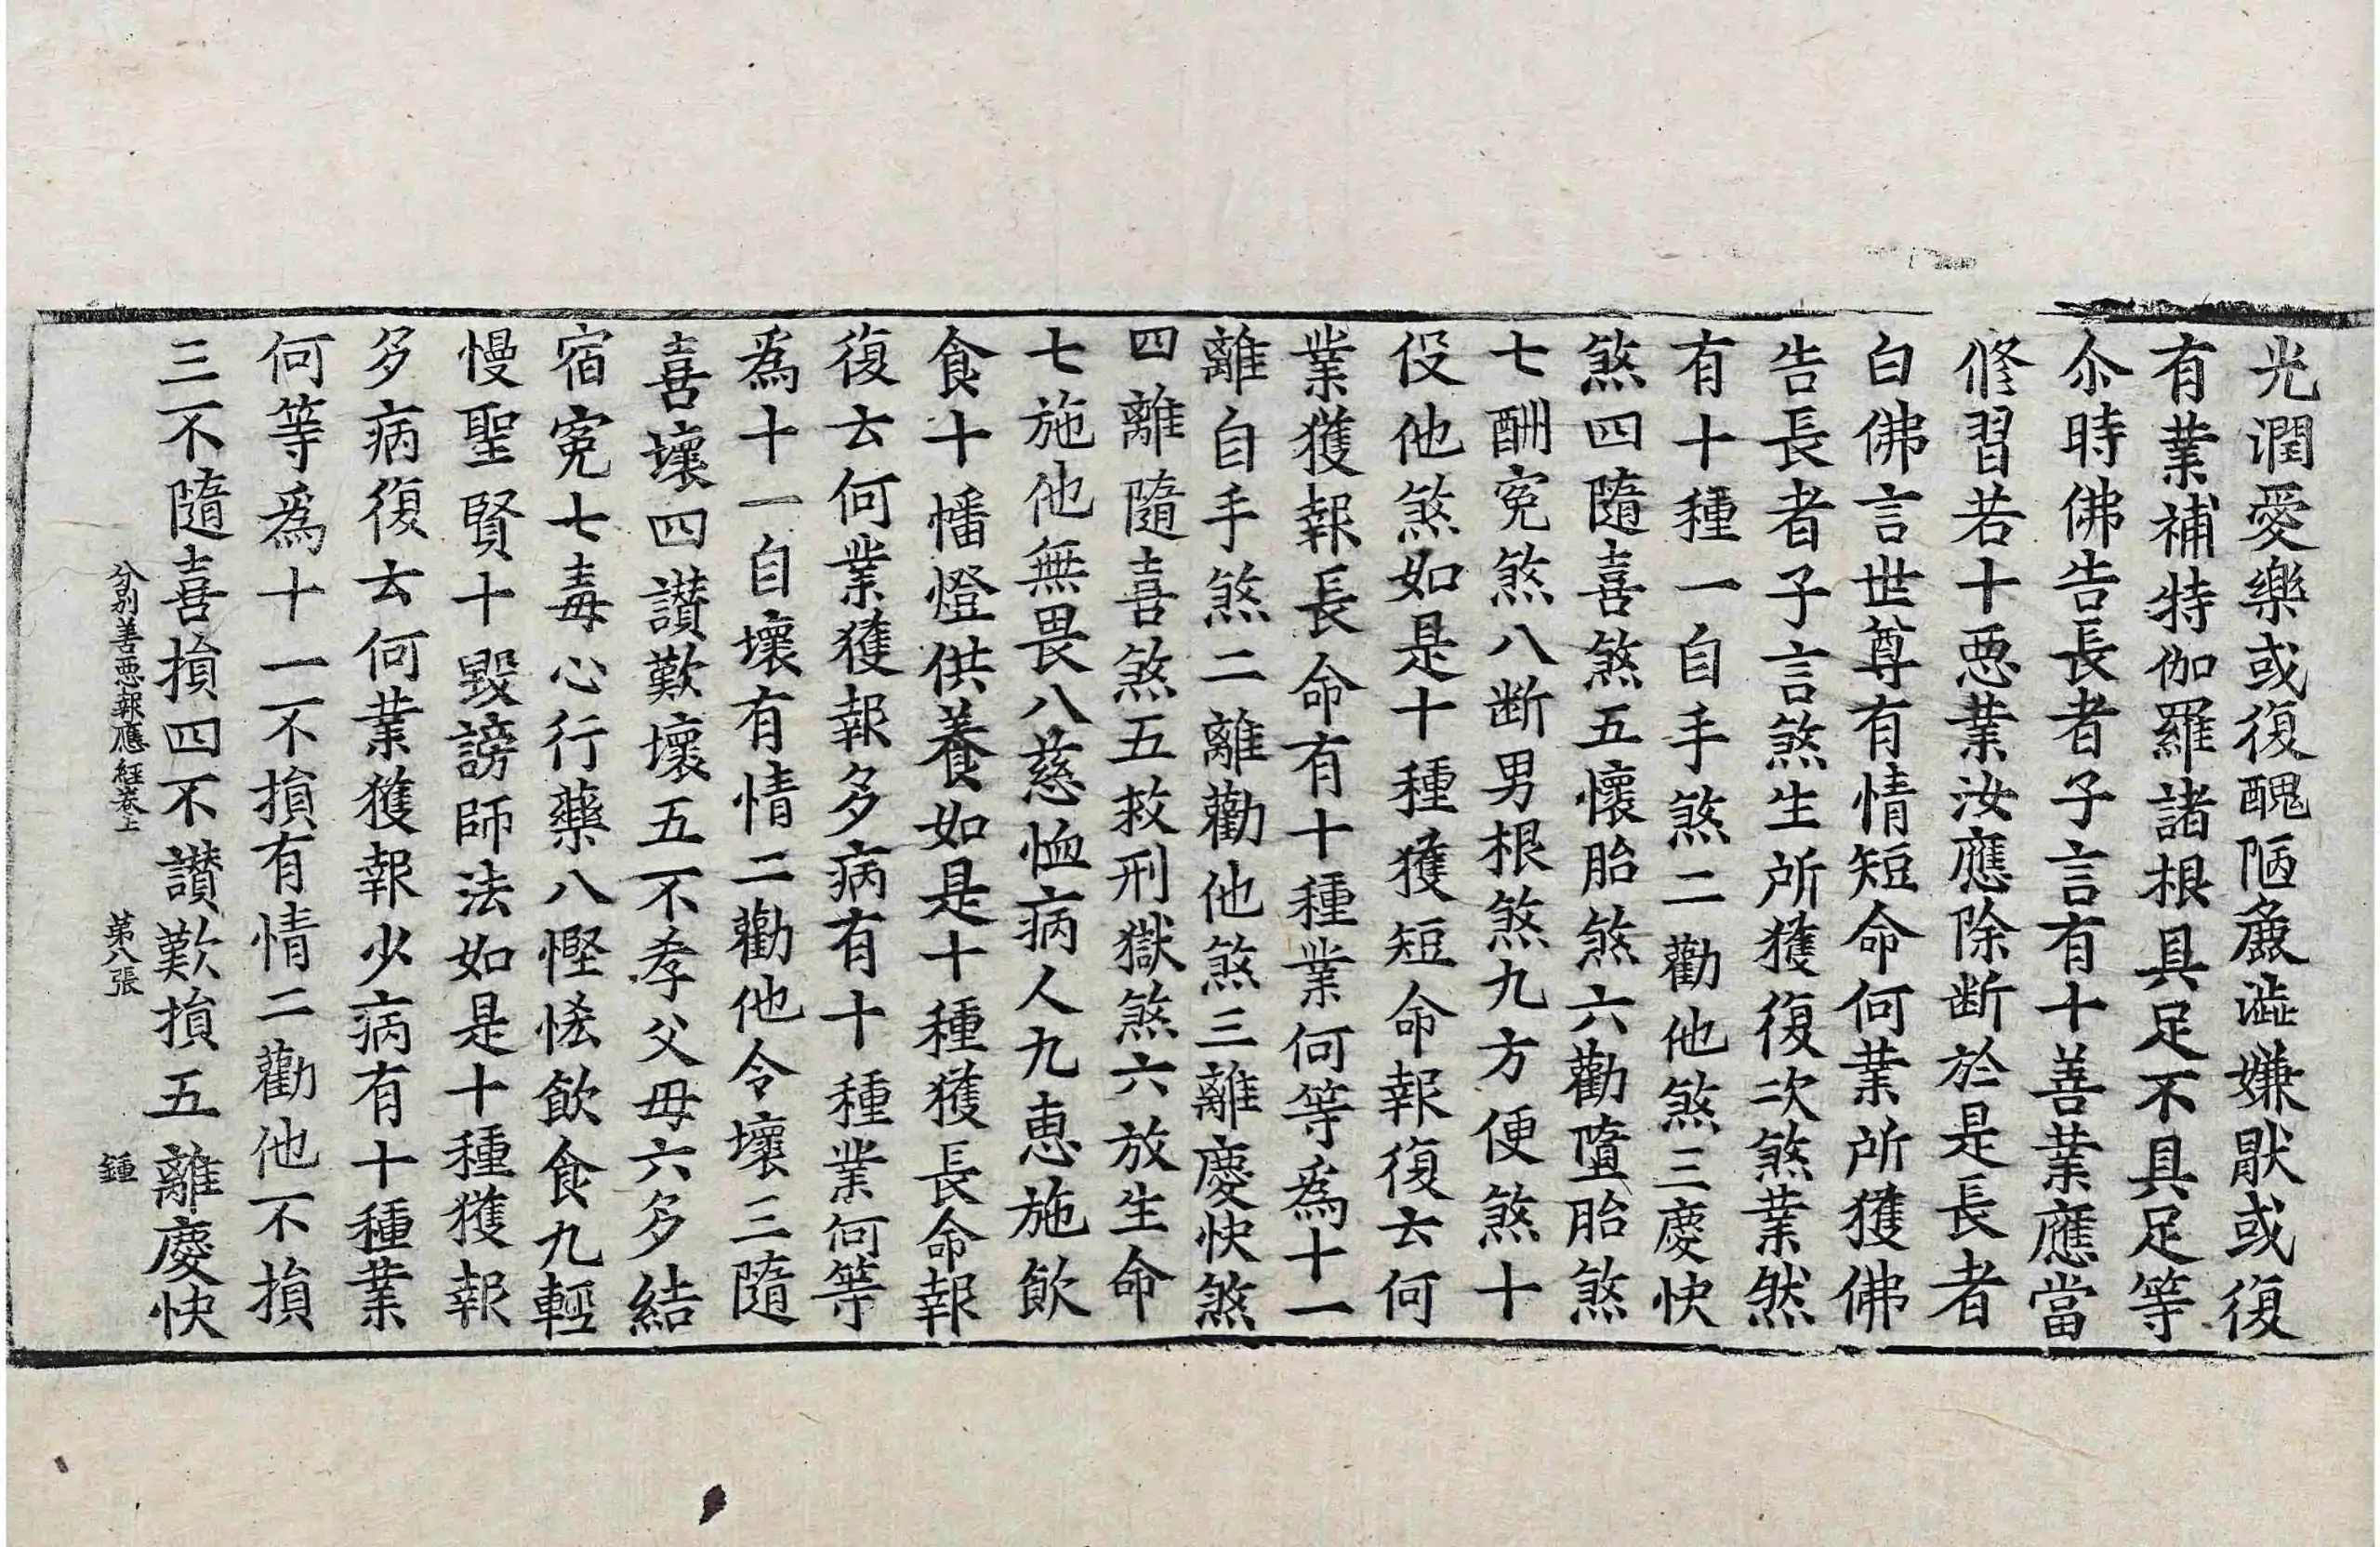 光潤愛樂或復醜陋麁澁嫌猒或復
有業補特伽羅諸根具足不具足等
尒時佛告長者子言有十善業應當
修習若十惡業汝應除断於是長者
白佛言世尊有情短命何業所獲佛
告長者子言煞生所獲復次煞業然
有十種一自手煞二勸他煞三慶快
煞四隨喜煞五懷胎煞六勸墮胎煞
七酬寃煞八断男根煞九方便煞十
役他煞如是十種獲短命報復云何
業獲報長命有十種業何等為十一
離自手煞二離勸他煞三離慶快煞
四離隨喜煞五救刑獄煞六放生命
七施他無畏八慈恤病人九惠施飲
食十幡燈供養如是十種獲長命報
復云何業獲報多病有十種業何等
為十一自壞有情二勸他令壞三隨
喜壞四讃歎壞五不孝父母六多結
宿寃七毒心行藥八慳悋飲食九輕
慢聖賢十毀謗師法如是十種獲報
多病復云何業獲報少病有十種業
何等為十一不損有情二勸他不損
三不隨喜損四不讃歎損五離慶快
分別善惡報應經卷上 第八張 鍾